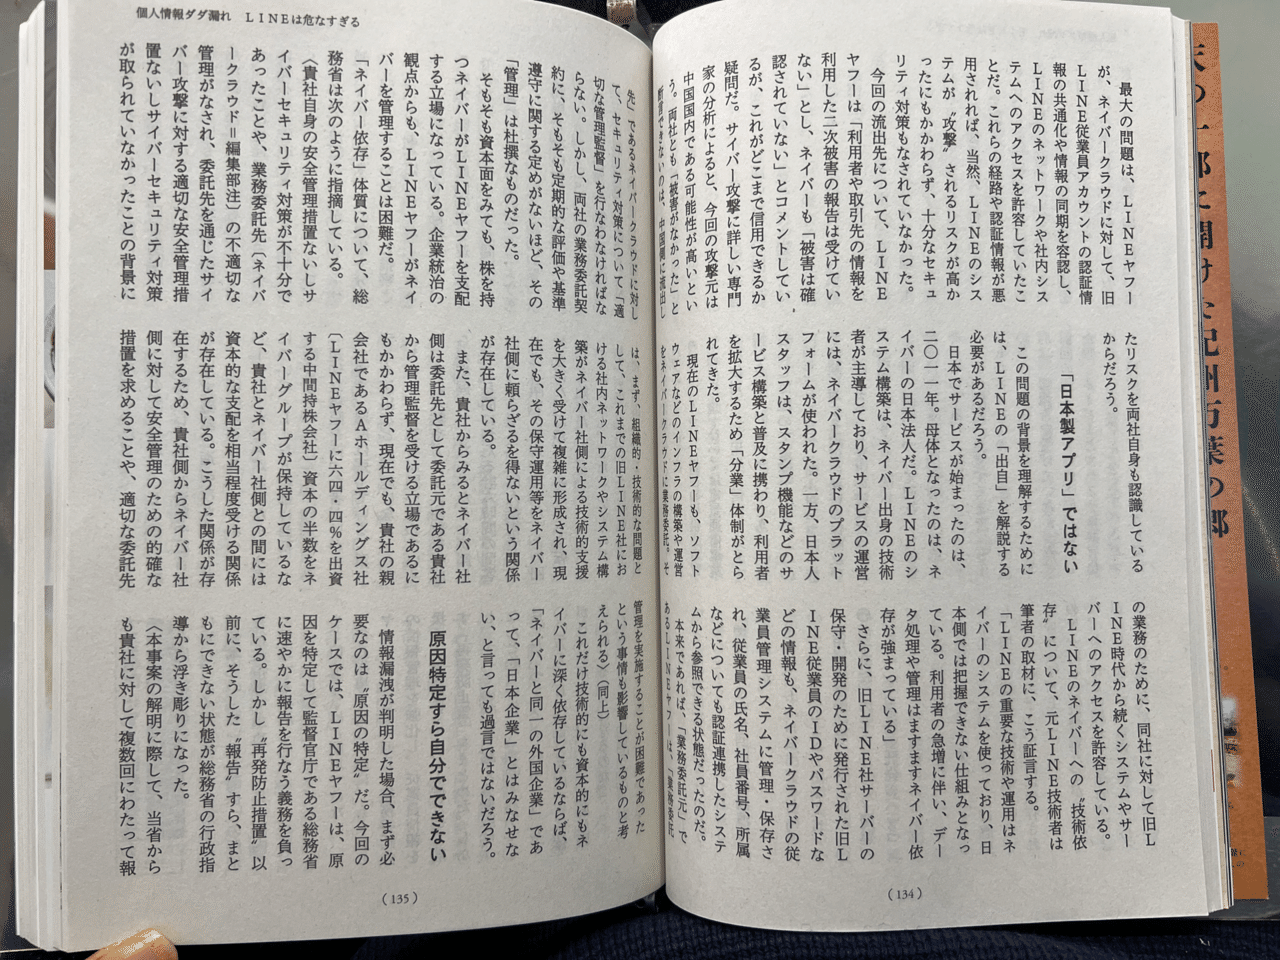 最大の問題は、LINEヤフー
が、ネイバークラウドに対して、旧
LINE従業員アカウントの認証情
報の共通化や情報の同期を容認し、
LINEのネットワークや社内シス
テムへのアクセスを許容していたこ
とだ。これらの経路や認証情報が悪
用されれば、当然、LINEのシス
テムが〝攻撃〟されるリスクが高か
ったにもかかわらず、十分なセキュ
リティ対策もなされていなかった。
今回の流出先について、LINE
ヤフーは「利用者や取引先の情報を
利用した二次被害の報告は受けてい
ない」とし、ネイバーも「被害は確
認されていない」とコメントしてい
るが、これがどこまで信用できるか
疑問だ。サイバー攻撃に詳しい専門
家の分析によると、今回の攻撃元は
中国国内である可能性が高いとい
う。両社とも「被害がなかった」と
断言できないのは、中国側に流出し
たリスクを両社自身も認識している
からだろう。
「日本製アプリ」ではない
この問題の背景を理解するために
は、LINEの「出自」を解説する
必要があるだろう。
日本でサービスが始まったのは、
二〇一一年。母体となったのは、ネ
イバーの日本法人だ。LINEのシ
ステム構築は、ネイバー出身の技術
者が主導しており、サービスの運営
には、ネイバークラウドのプラット
フォームが使われた。一方、日本人
スタッフは、スタンプ機能などのサ
ービス構築と普及に携わり、利用者
を拡大するため「分業」体制がとら
れてきた。
現在のLINEヤフーも、ソフト
ウェアなどのインフラの構築や運営
をネイバークラウドに業務委託。そ
の業務のために、同社に対して旧L
INE時代から続くシステムやサー
バーへのアクセスを許容している。
LINEのネイバーへの〝技術依
存〟について、元LINE技術者は
筆者の取材に、こう証言する。
「LINEの重要な技術や運用はネ
イバーのシステムを使っており、日
本側では把握できない仕組みとなっ
ている。利用者の急増に伴い、デー
タ処理や管理はますますネイバー依
存が強まっている」
さらに、旧LINE社サーバーの
保守・開発のために発行された旧L
INE従業員のIDやパスワードな
どの情報も、ネイバークラウドの従
業員管理システムに管理・保存さ
れ、従業員の氏名、社員番号、所属
などについても認証連携したシステ
ムから参照できる状態だったのだ。
本来であれば、「業務委託元」で
あるLINEヤフーは、「業務委託
(134)
個人情報ダダ漏れ　LINEは危なすぎる
先」であるネイバークラウドに対し
て、セキュリティ対策について「適
切な管理監督」を行なわなければな
らない。しかし、両社の業務委託契
約に、そもそも定期的な評価や基準
遵守に関する定めがないほど、その
「管理」は杜撰なものだった。
そもそも資本面をみても、株を持
つネイバーがLINEヤフーを支配
する立場になっている。企業統治の
観点からも、LINEヤフーがネイ
バーを管理することは困難だ。
「ネイバー依存」体質について、総
務省は次のように指摘している。
〈貴社自身の安全管理措置ないしサ
イバーセキュリティ対策が不十分で
あったことや、業務委託先〔ネイバ
ークラウド＝編集部注〕の不適切な
管理がなされ、委託先を通じたサイ
バー攻撃に対する適切な安全管理措
置ないしサイバーセキュリティ対策
が取られていなかったことの背景に
は、まず、組織的・技術的な問題と
して、これまでの旧LINE社にお
ける社内ネットワークやシステム構
築がネイバー社側による技術的支援
を大きく受けて複雑に形成され、現
在でも、その保守運用等をネイバー
社側に頼らざるを得ないという関係
が存在している。
また、貴社からみるとネイバー社
側は委託先として委託元である貴社
から管理監督を受ける立場であるに
もかかわらず、現在でも、貴社の親
会社であるAホールディングス社
〔LINEヤフーに六四・四％を出資
する中間持株会社〕資本の半数をネ
イバーグループが保持しているな
ど、貴社とネイバー社側との間には
資本的な支配を相当程度受ける関係
が存在している。こうした関係が存
在するため、貴社側からネイバー社
側に対して安全管理のための的確な
措置を求めることや、適切な委託先
管理を実施することが困難であった
という事情も影響しているものと考
えられる〉（同上）
これだけ技術的にも資本的にもネ
イバーに深く依存しているならば、
「ネイバーと同一の外国企業」であ
って、「日本企業」とはみなせな
い、と言っても過言ではないだろう。
原因特定すら自分でできない
情報漏洩が判明した場合、まず必
要なのは〝原因の特定〟だ。今回の
ケースでは、LINEヤフーは、原
因を特定して監督官庁である総務省
に速やかに報告を行なう義務を負っ
ている。しかし〝再発防止措置〟以
前に、そうした〝報告〟すら、まと
もにできない状態が総務省の行政指
導から浮き彫りになった。
〈本事案の解明に際して、当省から
も貴社に対して複数回にわたって報
(135)